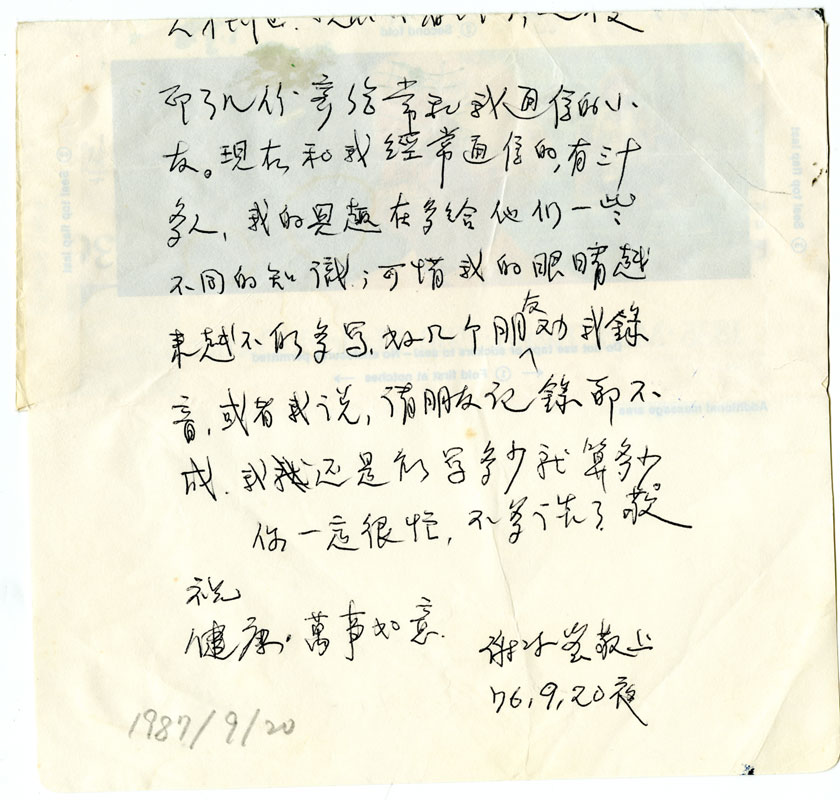 ② Second fold
印了几份寄给常和我通信的小
友。現在和我經常通信的,有三十
多人,我的興趣在多给他们一些
不同的知識;可惜我的眼睛越
来越不能多写,好几个朋友劝我錄
音,或者我说,請朋友记錄都不
成.我还是能写多少就算多少
你一定很忙,不多 了 敬
祝
健康.萬事如意.
谢冰莹敬上
76.9.20夜
1987/9/20
③ Seal top flap last
③ Seal top flap last
Do not use tape or stickers to seal—No permitted
① Fold first at notches
Additional message area